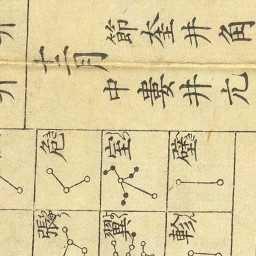 節 奎 井 角
十二月
中 婁 井 亢
危 室 壁
張 翼 軫